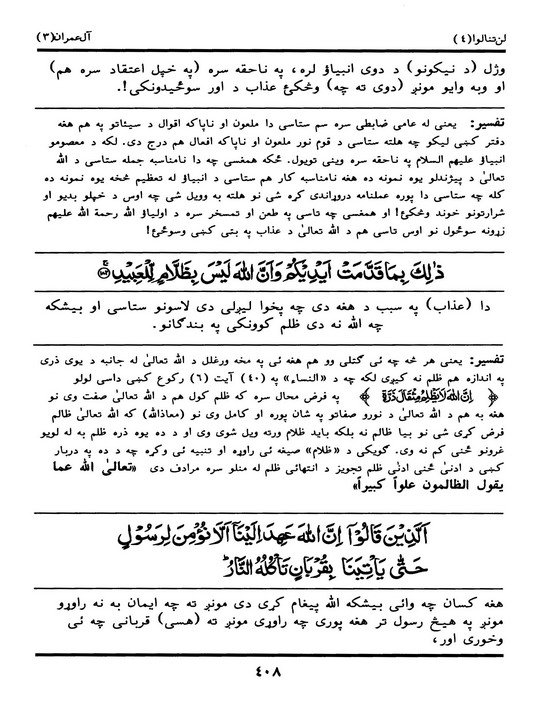 لن تنالوا (٤) آل عمران (٣)
وژل (د نیکونو) د دوی انبیاؤ لره، په ناحقه سره (په خپل اعتقاد سره هم)
او وبه وایو مونږ (دوی ته چه) وڅکئ عذاب د اور سوځیدونکی!.
تفسیر: یعنی له عامی ضابطی سره سم ستاسی دا ملعون او ناپاکه اقوال د سیئاتو په هم هغه
دفتر کښی لیکو چه هلته ستاسی د قوم نور ملعون او ناپاکه افعال هم درج دی. لکه د معصومو
انبیاؤ علیهم السلام په ناحقه سره وینی تویول. څکه همغسی چه دا نامناسبه جمله ستاسی د الله
تعالیٰ د پیژندلو یوه نمونه ده هغه نامناسبه کار هم ستاسی د انبیاؤ له تعظیم څخه یوه نمونه ده
کله چه ستاسی دا پوره عملنامه دروړاندی کړه شی نو هلته به وویل شی چه اوس د خپلو بدیو او
شرارتونو خوند وڅکئ! او همغسی چه تاسی په طعن او تمسخر سره د اولیاؤ الله رحمة الله علیهم
زړونه سوځول نو اوس تاسی هم د الله تعالیٰ د عذاب په بتی کښی وسوځئ!
ذٰلِكَ بِمَا قَدَّمَتْ اَيْدِيْكُمْ وَاَنَّ اللهَ لَيْسَ بِظَلَّامٍ لِّلْعَبِيْدِ
دا (عذاب) په سبب د هغه دی چه پخوا لیږلی دی لاسونو ستاسی او بیشکه
چه الله نه دی ظلم کوونکی په بندگانو.
تفسیر: یعنی هر څه چه ئی گټلی وو هم هغه ئی په مخه ورغلل د الله تعالیٰ له جانبه د یوی ذری
په اندازه هم ظلم نه کیږی لکه چه د «النساء» په (٤٠) آیت (٦) رکوع کښی داسی لولو
﴿ اِنَّ اللهَ لَا يَظْلِمُ مِثْقَالَ ذَرَّةٍ ﴾ په فرض محال سره که ظلم کول هم د الله تعالیٰ صفت وی نو
هغه به هم د الله تعالیٰ د نورو صفاتو په شان پوره او کامل وی نو (معاذالله) که الله تعالیٰ ظالم
فرض کړی شی نو بیا ظالم نه بلکه باید ظلام ورته ویل شوی وی او د ده یوه ذره ظلم به له لویو
غرونو څنی کم نه وی. گویکی د «ظلام» صیغه ئی راوړه او تنبیه ئی وکړه چه د ده په دربار
کښی د ادنیٰ څنی ادنیٰ ظلم تجویز د انتهائی ظلم له منلو سره مرادف دی «تعالیٰ الله عما
یقول الظالمون علواً کبیراً»
اَلَّذِيْنَ قَالُوْٓا اِنَّ اللهَ عَهِدَ اِلَيْنَآ اَلَّا نُؤْمِنَ لِرَسُوْلٍ
حَتّٰى يَاْتِيَنَا بِقُرْبَانٍ تَاْكُلُهُ النَّارُ ؕ
هغه کسان چه وائی بیشکه الله پیغام کړی دی مونږ ته چه ایمان به نه راوړو
مونږ په هیڅ رسول تر هغه پوری چه راوړی مونږ ته (هسی) قربانی چه ئی
وخوری اور،
٤٠٨